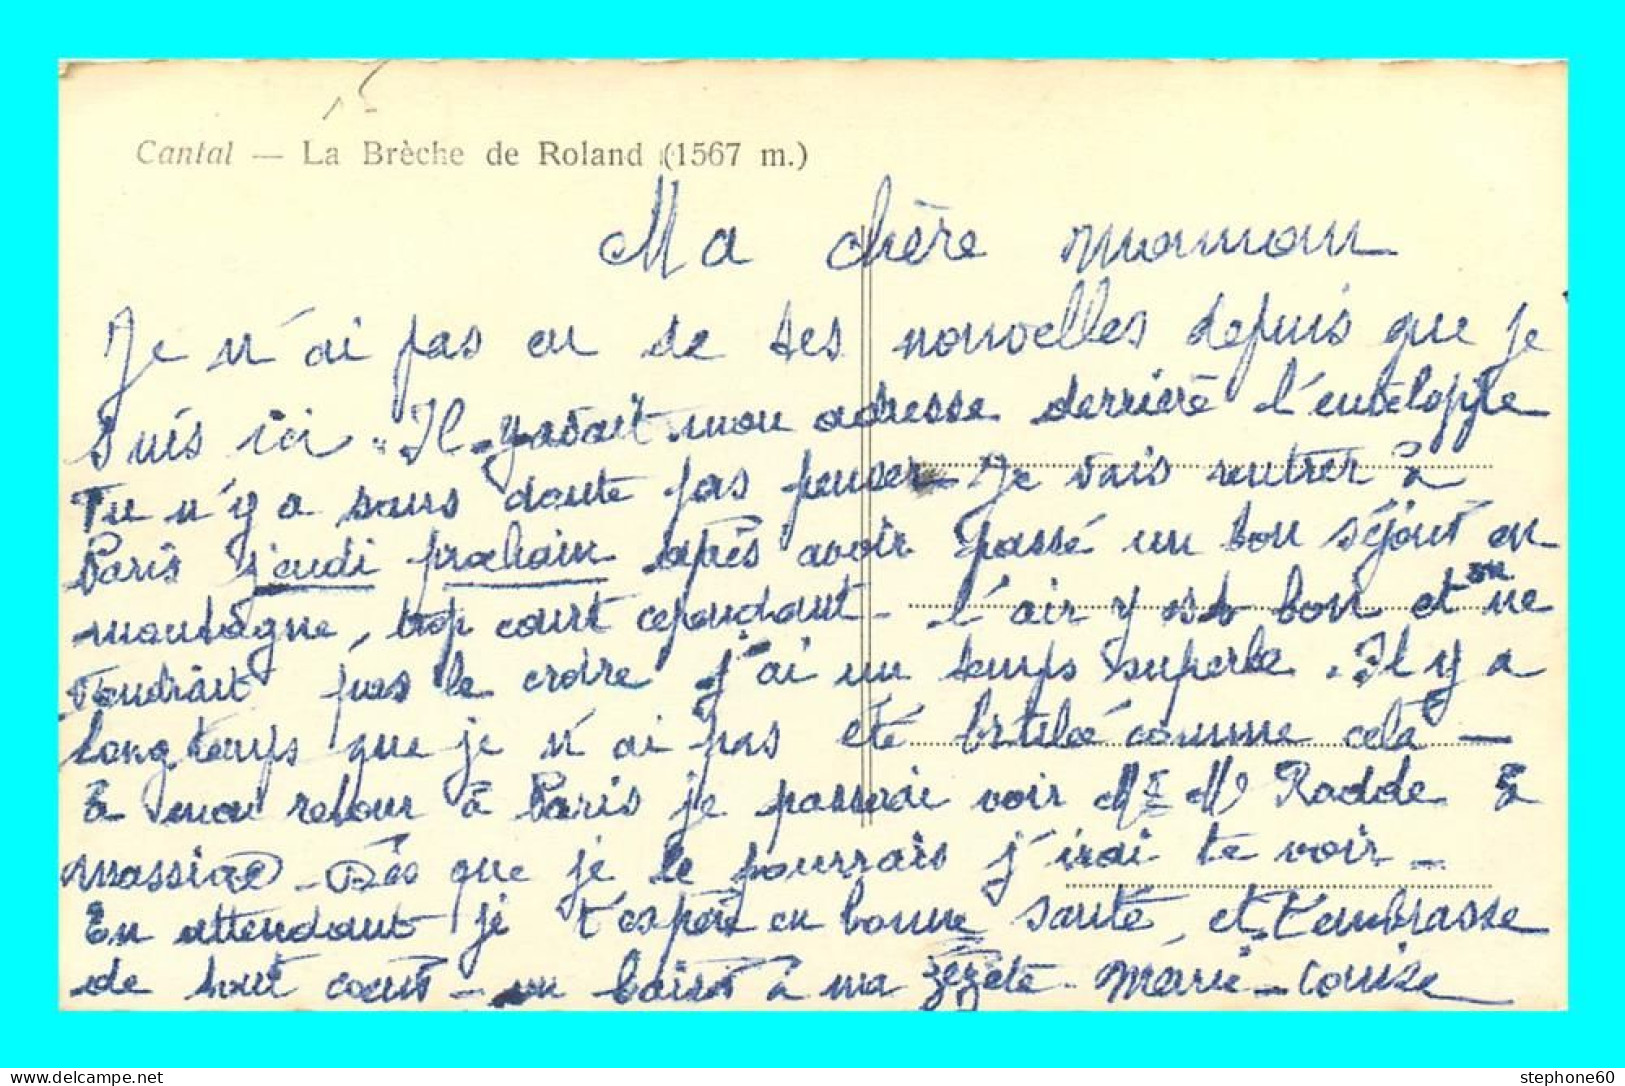 Cantal — La Brèche de Roland (1567 m.)
Ma chère maman
Je n'ai pas eu de tes nouvelles depuis que je
suis ici. Il y avait mon adresse derrière l'enveloppe
Tu n'y a sans doute pas penser. Je vais rentrer à
Paris jeudi prochain après avoir passé un bon séjour en
montagne, trop court cependant - l'air y est bon et on ne
voudrait pas le croire j'ai un temps superbe. Il y a
longtemps que je n'ai pas été brulée comme cela -
à mon retour à Paris je passerai voir Mr Me Radde à
massiac - Dès que je le pourrais j'irai te voir -
En attendant je t'espère en bonne santé, et t'embrasse
de tout cœur - un baiser à ma zézète - Marie-Louise
stephone60